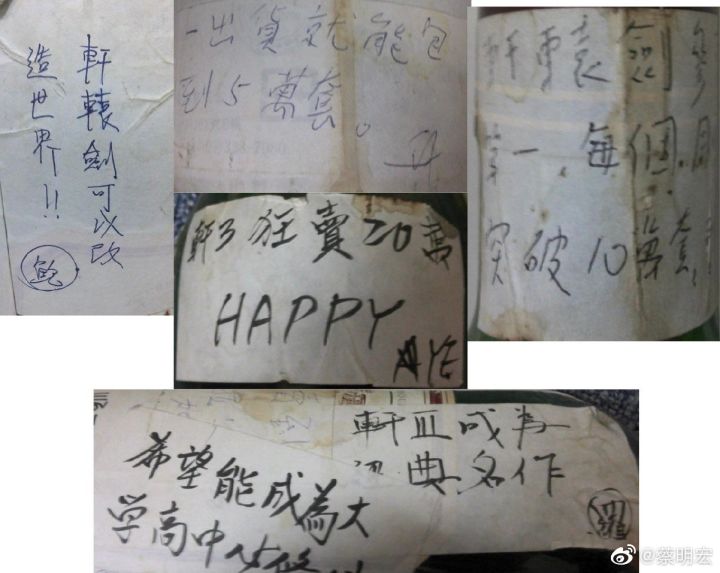 軒轅劍可以改
造世界!!
鮑
一出貨就能包
到5萬套。
轅劍參
一.每個月
突破10萬套
軒3狂賣20萬
HAPPY
軒III成為
典名作
羅
希望能成為大
学高中
@蔡明宏